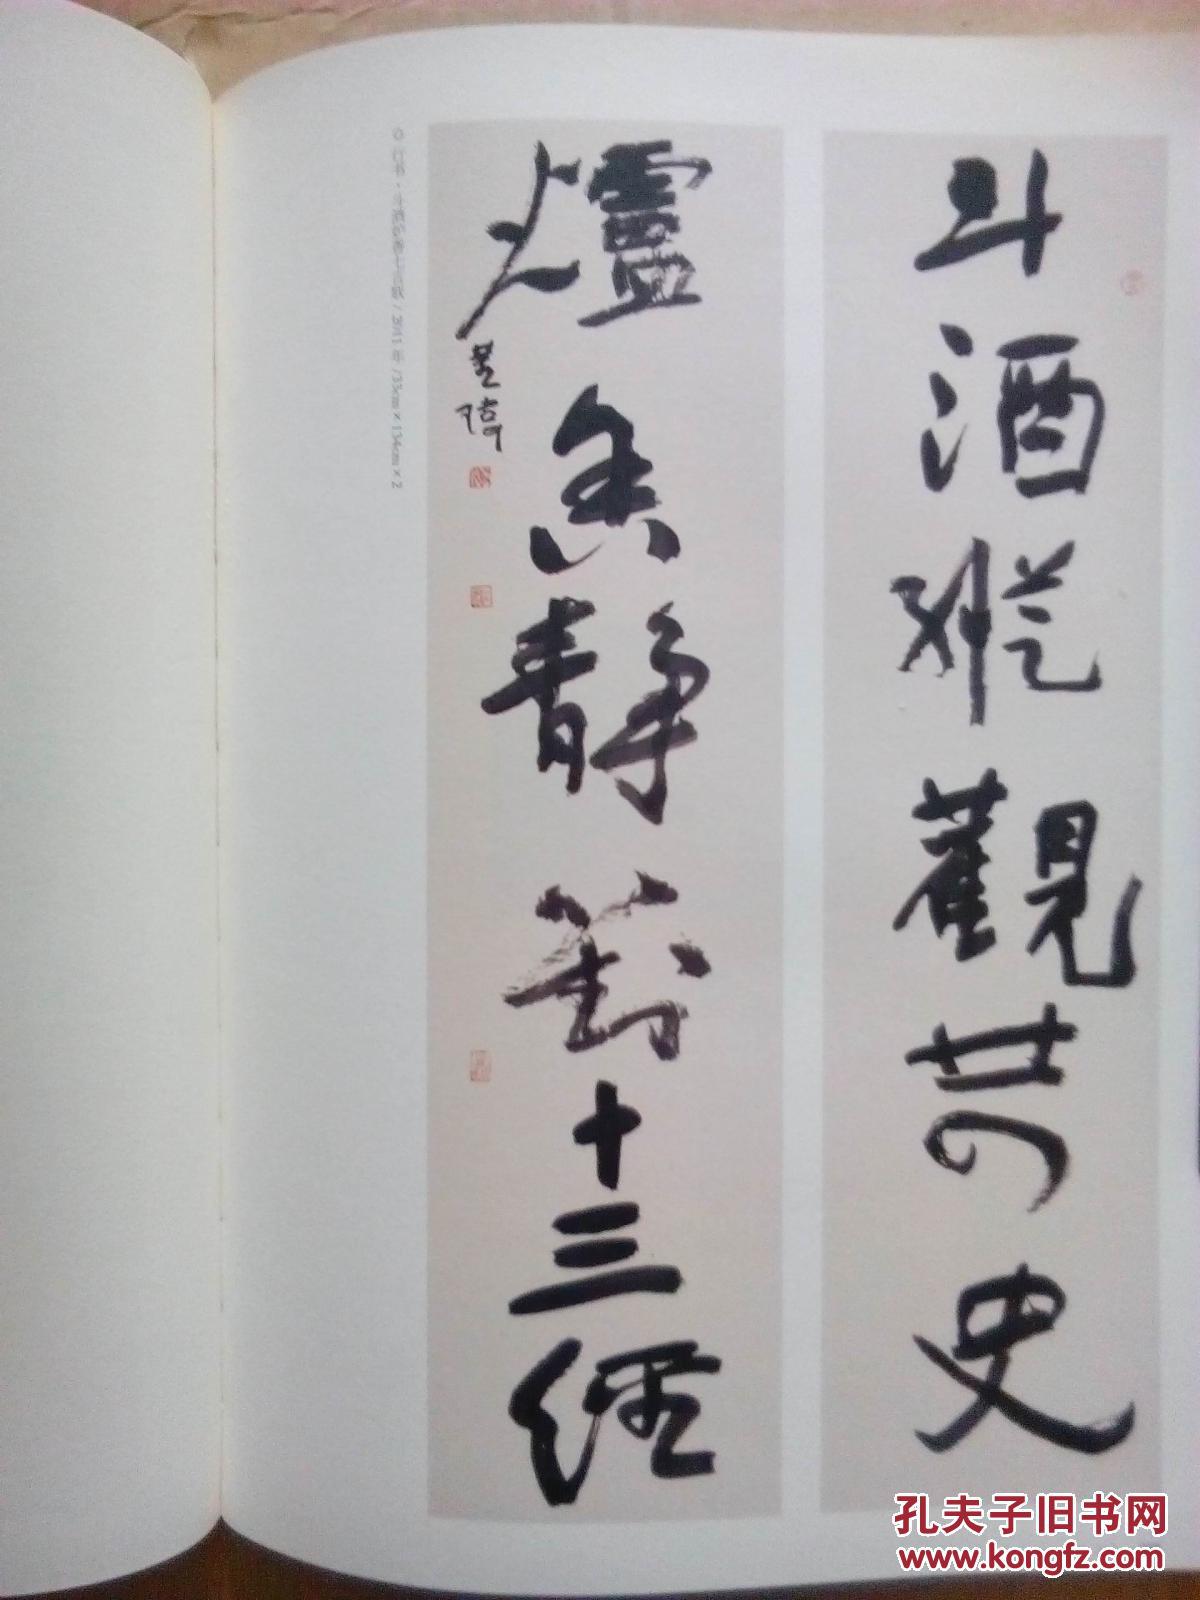 斗酒縱觀廿四史
爐香靜對十三經
◎ 行书·斗酒炉香七言联 / 2011年 / 33cm × 134cm × 2
孔夫子旧书网
www.kongfz.com